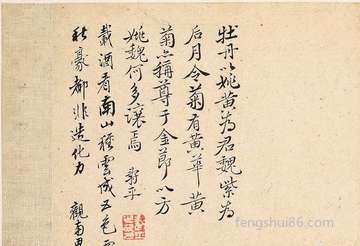 牡丹以姚黄為君魏紫為
后月令菊有黄華黄
菊亦稱尊于金節以方
姚魏何多讓焉 壽平
載酒看南山種雲成五色
秋豪都非造化力 觀南
fengshui86.com